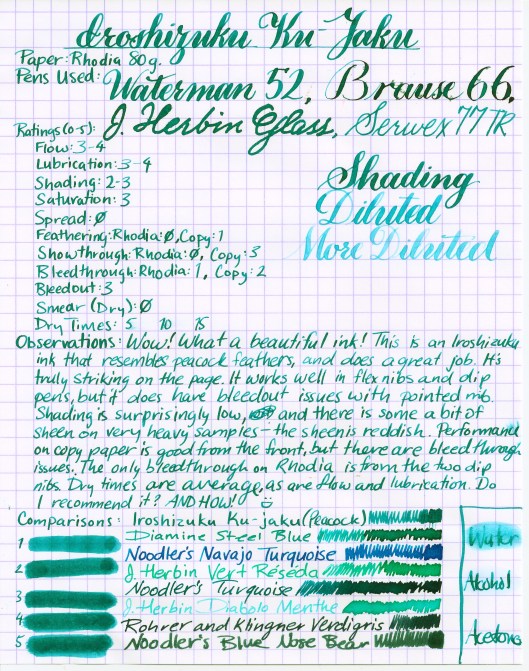 Iroshizuku Ku-Jaku
Paper: Rhodia 80g.
Pens Used: Waterman 52, Brause 66,
J. Herbin Glass, Serwex 77TR
Ratings (0-5):
Flow: 3-4
Lubrication: 3-4
Shading: 2-3
Saturation: 3
Spread: Ø
Feathering: Rhodia: Ø, Copy: 1
Showthrough: Rhodia: Ø, Copy: 3
Bleedthrough: Rhodia: 1, Copy: 2
Bleedout: 3
Smear (Dry): Ø
Dry Times: 5 10 15
Shading
Diluted
More Diluted
Observations: Wow! What a beautiful ink! This is an Iroshizuku
ink that resembles peacock feathers, and does a great job. It's
truly striking on the page. It works well in flex nibs and dip
pens, but it does have bleedout issues with pointed nib.
Shading is surprisingly low, and there is some a bit of
sheen on very heavy samples - the sheen is reddish. Performance
on copy paper is good from the front, but there are bleedthrough
issues. The only bleedthrough on Rhodia is from the two dip
nibs. Dry times are average, as are flow and lubrication. Do
I recommend it? AND HOW! :)
Comparisons: Iroshizuku Ku-jaku (Peacock)
Diamine Steel Blue
Noodler's Navajo Turquoise
J. Herbin Vert Réséda
Noodler's Turquoise
J. Herbin Diabolo Menthe
Rohrer and Klingner Verdigris
Noodler's Blue Nose Bear
1
2
3
4
5
Water
Alcohol
Acetone